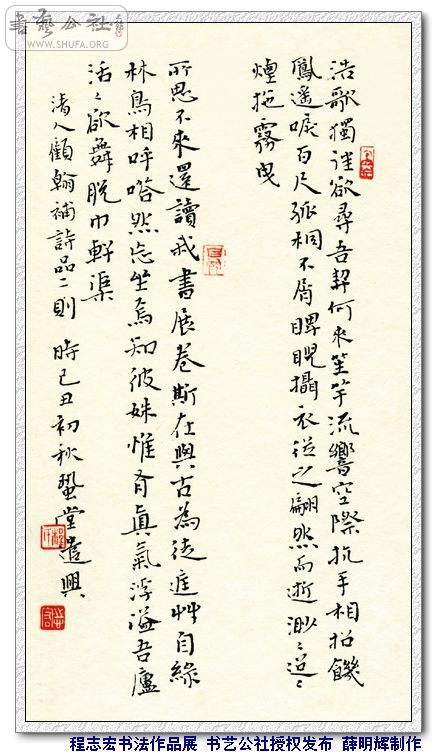 書藝公社
WWW.SHUFA.ORG
浩歌獨往欲尋吾契何來笙竽流響空際抗手相招饑
鳳遥唳百尺孤桐不屑睥睨攝衣從之翩然而逝渺々逆々
煙拖霧曳
所思不來還讀我書展卷斯在與古為徒庭艸自緑
林鳥相呼嗒然忘坐焉知彼姝惟有真氣浮溢吾廬
活々欲舞脱巾軒渠
清人顧翰補詩品二則 時己丑初秋蛩堂遣興
程志宏书法作品展 书艺公社授权发布 薛明辉制作